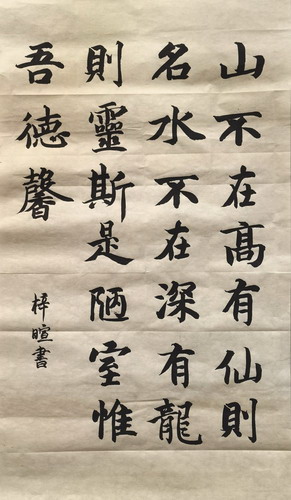 山不在高有仙則
名水不在深有龍
則靈斯是陋室惟
吾德馨
梓暄書